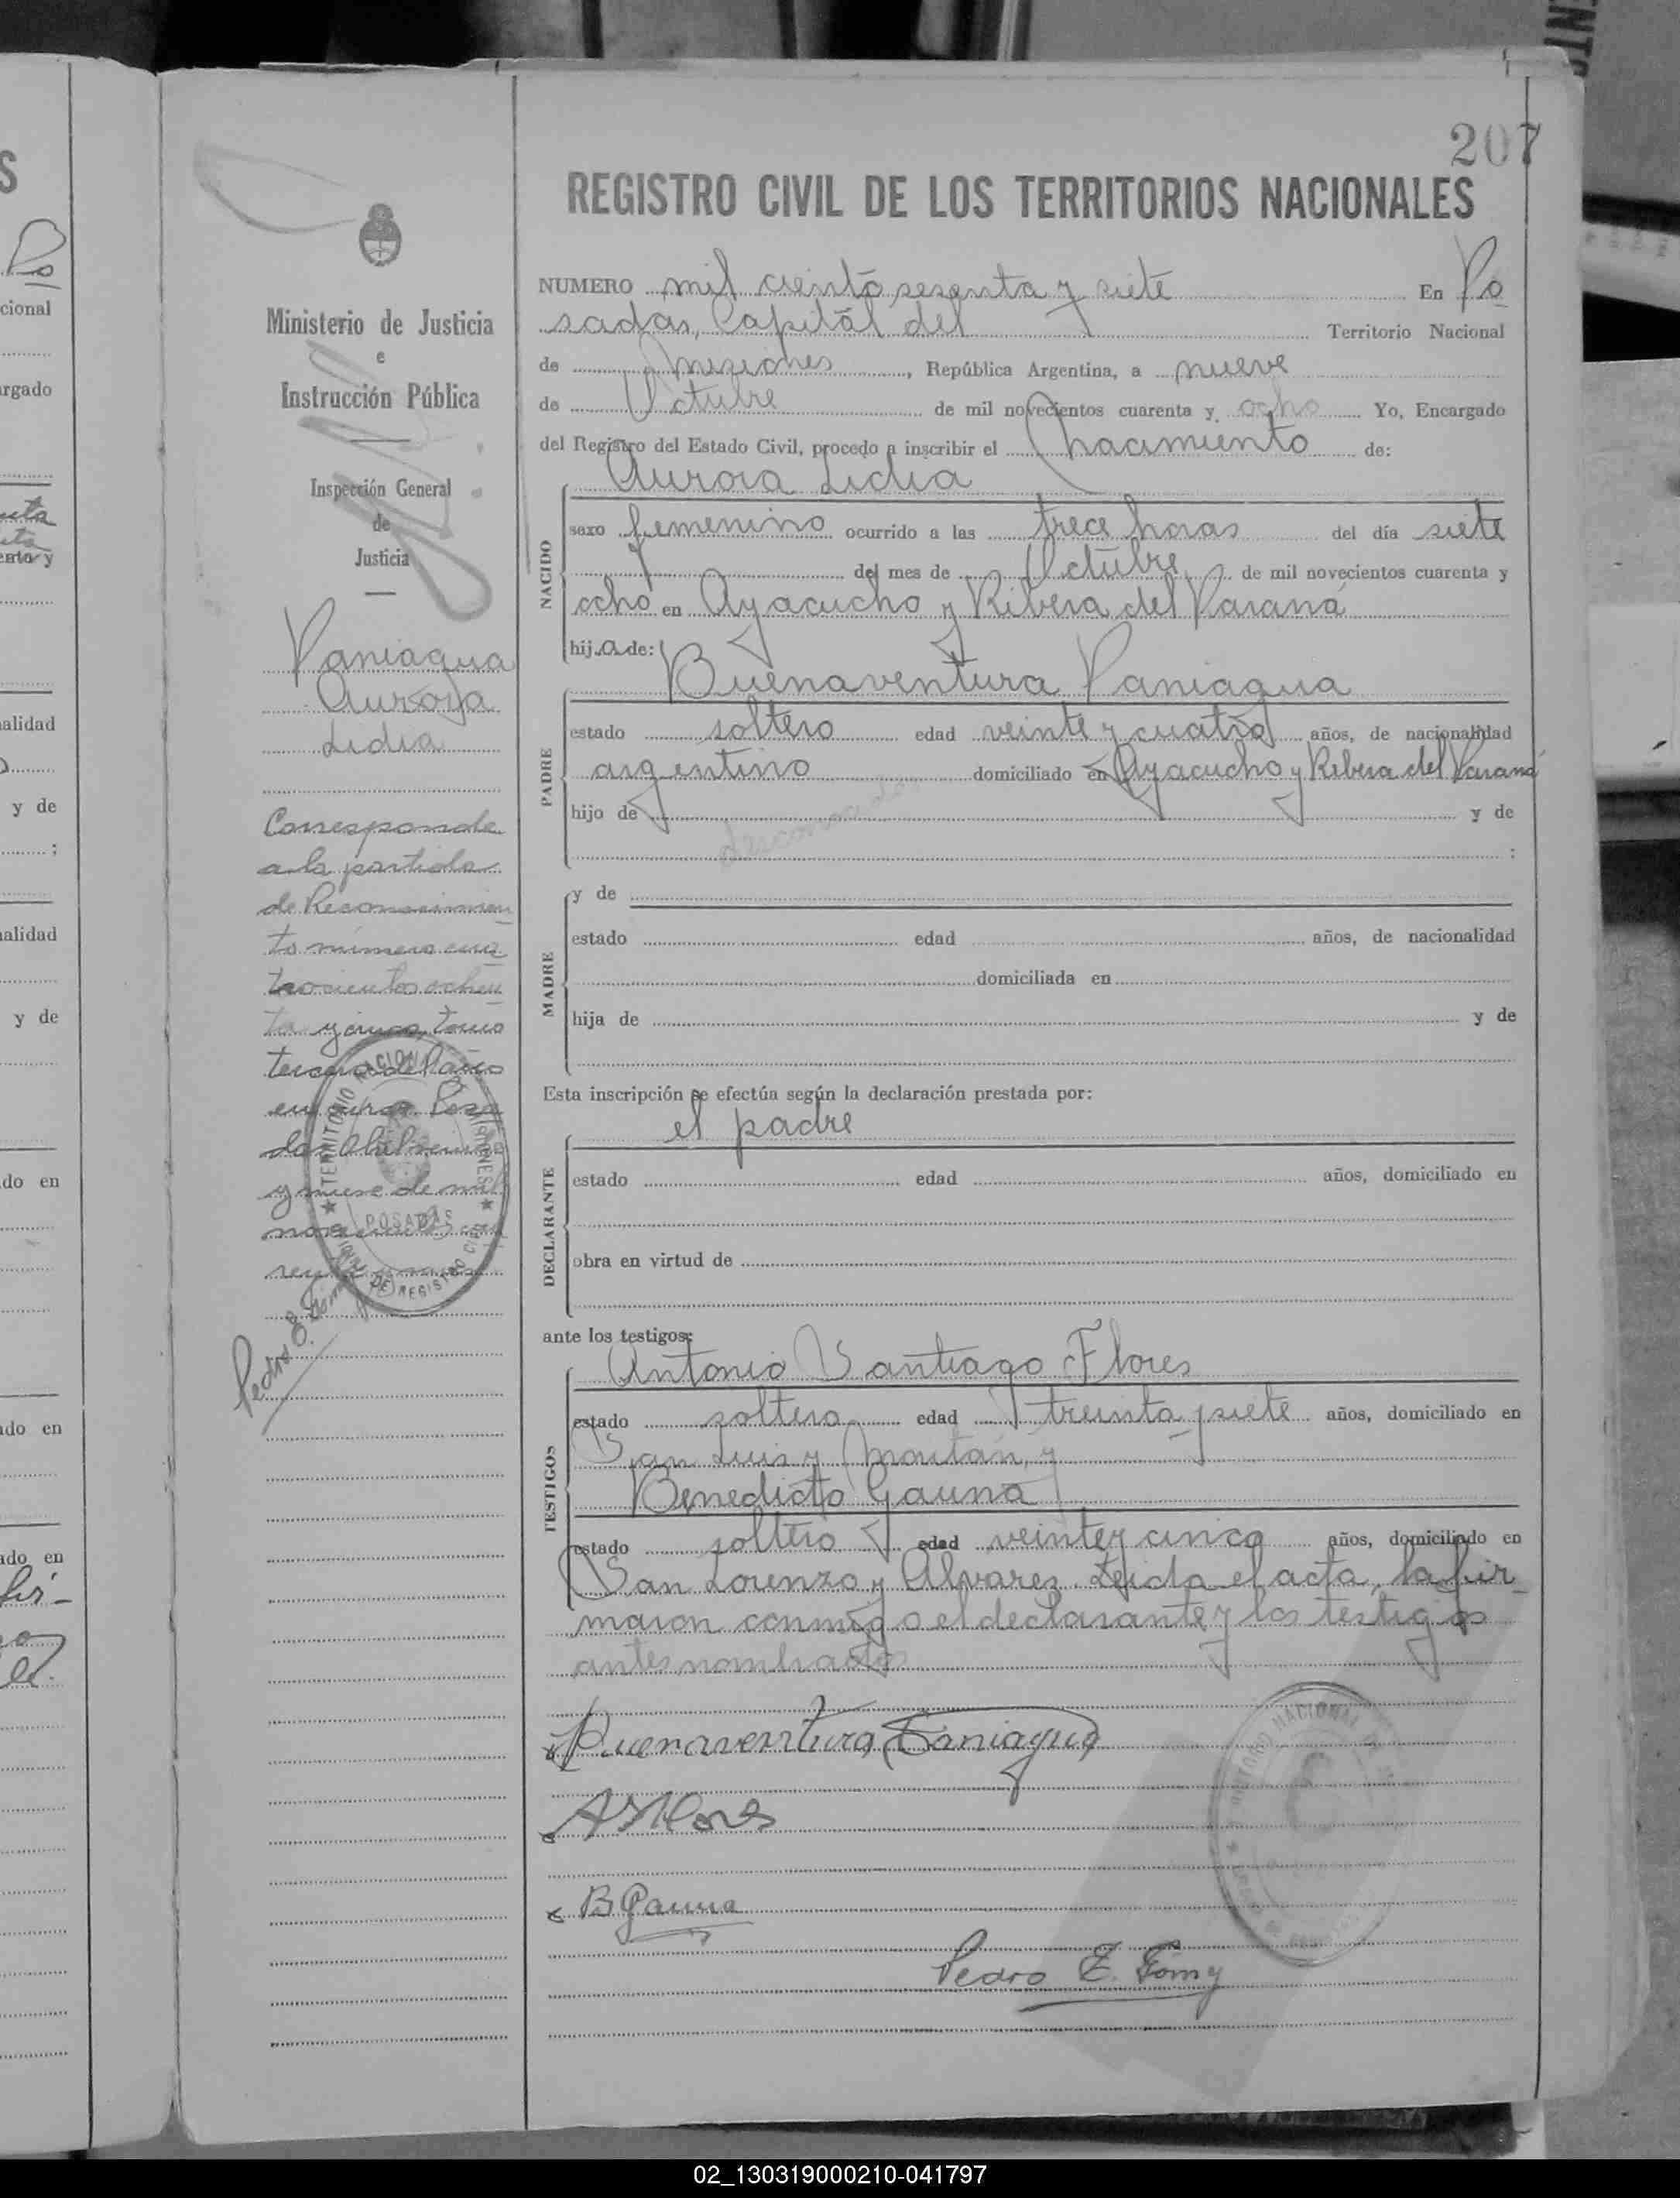 207
REGISTRO CIVIL DE LOS TERRITORIOS NACIONALES
Ministerio de Justicia
e
Instrucción Pública
Inspección General
de
Justicia
Paniagua
Aurora
Lidia
Corresponde
a la partida
de Reconocimien
to número cua
trocientos ochen
ta y cinco, tomo
tercero del año
en curso. Posa
das Abril
y nueve de mil
Pedro E.
NUMERO mil ciento sesenta y siete En Po
sadas, Capital del Territorio Nacional
de Misiones, República Argentina, a nueve
de Octubre de mil novecientos cuarenta y ocho Yo, Encargado
del Registro del Estado Civil, procedo a inscribir el nacimiento de:
Aurora Lidia
NACIDO
sexo femenino ocurrido a las trece horas del día siete
del mes de Octubre de mil novecientos cuarenta y
ocho en Ayacucho y Ribera del Paraná
hija de:
Buenaventura Paniagua
PADRE
estado soltero edad veinte y cuatro años, de nacionalidad
argentino domiciliado en Ayacucho y Ribera del Paraná
hijo de desconocidos y de
:
MADRE
y de
estado edad años, de nacionalidad
domiciliada en
hija de y de
Esta inscripción se efectúa según la declaración prestada por:
el padre
DECLARANTE
estado edad años, domiciliado en
obra en virtud de
ante los testigos:
Antonio Santiago Flores
TESTIGOS
estado soltero edad treinta y siete años, domiciliado en
San Luis y Moritán, y
Benedicto Gauna
estado soltero edad veinte y cinco años, domiciliado en
San Lorenzo y Alvarez. Leida el acta, la fir-
maron conmigo el declarante y los testigos
antes nombrados
Buenaventura Paniagua
ASFlores
B Gauna
Pedro E.
TERRITORIO NACIONAL DE MISIONES
POSADAS
DE REGISTRO CIVIL
02_130319000210-041797